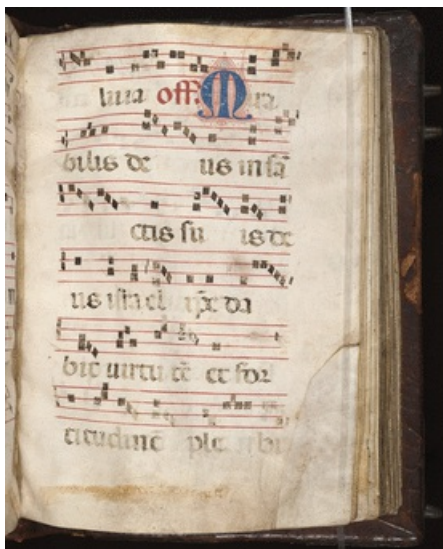 luia off. Mira
bilis de us in sā
ctis su is de
us israel ip̄e da
bit uirtutē et for
titudinē plebi